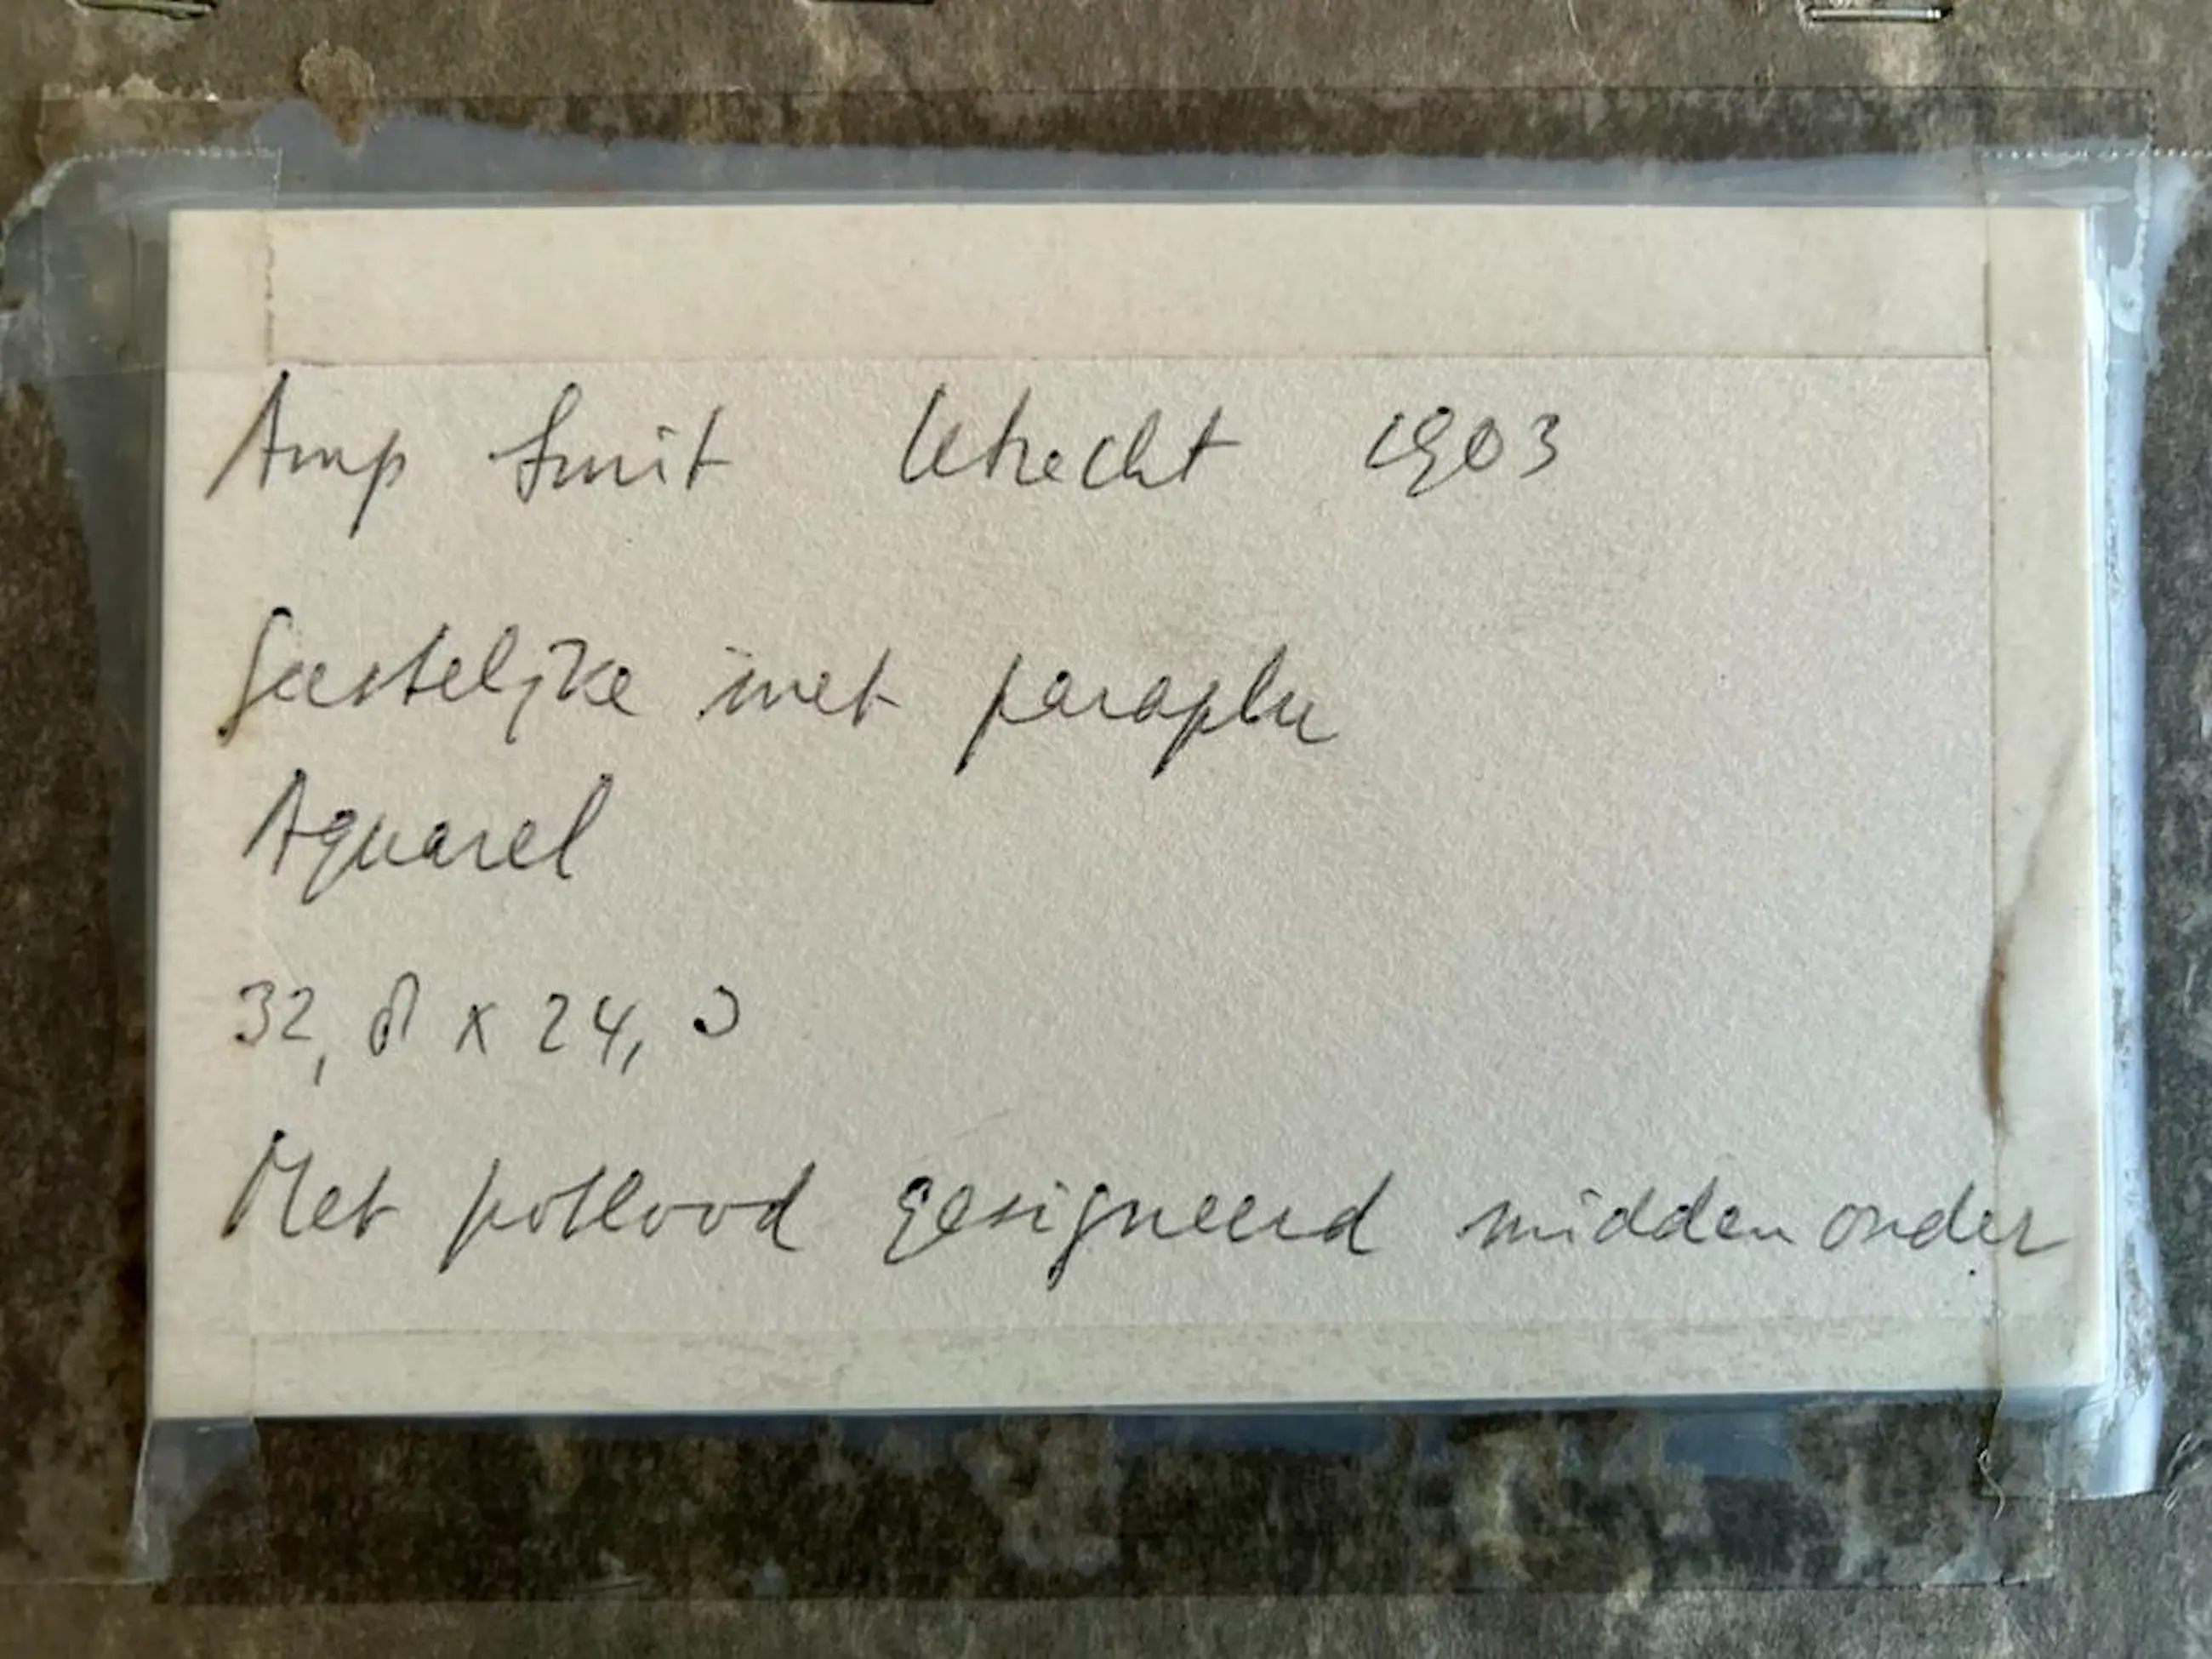 Amp Smit Utrecht 1903
Geestelijke met paraplu
Aquarel
32,8 x 24,0
Met potlood gesigneerd midden onder